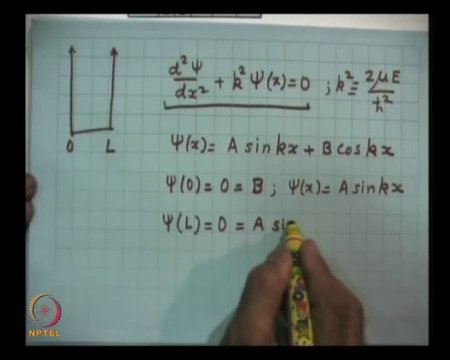 d²Ψ/dx² + k²Ψ(x) = 0 ; k² = 2μE/ħ²
0 L
Ψ(x) = A sin kx + B cos kx
Ψ(0) = 0 = B ; Ψ(x) = A sin kx
Ψ(L) = 0 = A si
NPTEL